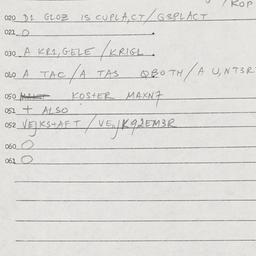 020 D1 GLOZ IS CUPLA,CT/G3PLACT
021 O
030 A KR1,GELE / KRIGL
040 A TAC/A TAS QBOTH/A U,NT3R
050 KOSTER MAXN7
051 + ALSO
052 VEJKS+AFT / VE,JK92EM3R
060 O
061 O